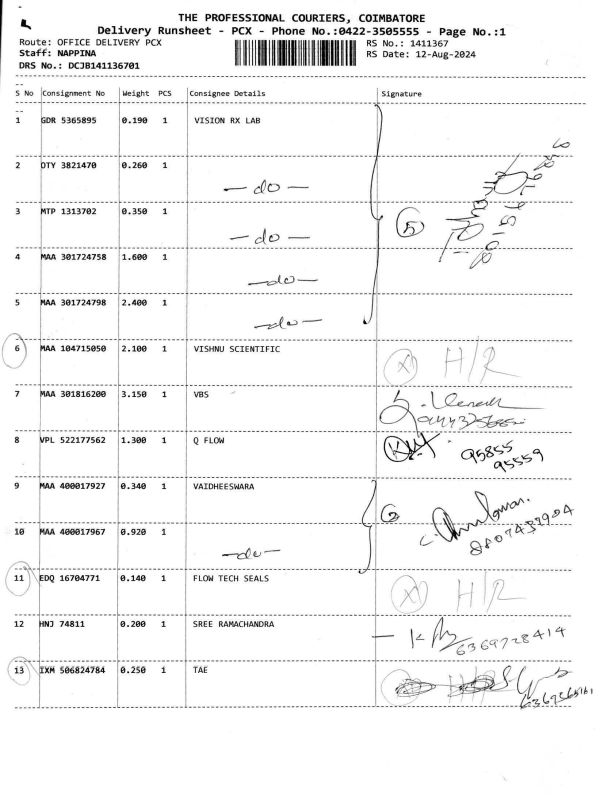 THE PROFESSIONAL COURIERS, COIMBATORE
Delivery Runsheet - PCX - Phone No.:0422-3505555 - Page No.:1
Route: OFFICE DELIVERY PCX
RS No.: 1411367
Staff: NAPPINA
RS Date: 12-Aug-2024
DRS No.: DCJB141136701
S No Consignment No Weight PCS Consignee Details Signature
1 GDR 5365895 0.190 1 VISION RX LAB
2 OTY 3821470 0.260 1
— do —
3 MTP 1313702 0.350 1
— do —
5
4 MAA 301724758 1.600 1
— do —
5 MAA 301724798 2.400 1
— do —
6 MAA 104715050 2.100 1 VISHNU SCIENTIFIC X H/R
7 MAA 301816200 3.150 1 VBS
8 VPL 522177562 1.300 1 Q FLOW
95855
95559
9 MAA 400017927 0.340 1 VAIDHEESWARA
2
10 MAA 400017967 0.920 1
— do —
11 EDQ 16704771 0.140 1 FLOW TECH SEALS X H/R
12 HNJ 74811 0.200 1 SREE RAMACHANDRA
6369728414
13 IXM 506824784 0.250 1 TAE